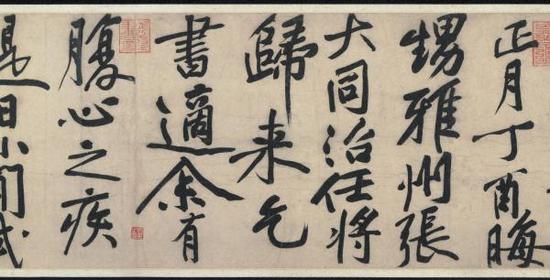 正月丁酉晦
甥雅州張
大同治任將
歸来乞
書適余有
腹心之疾
是日小